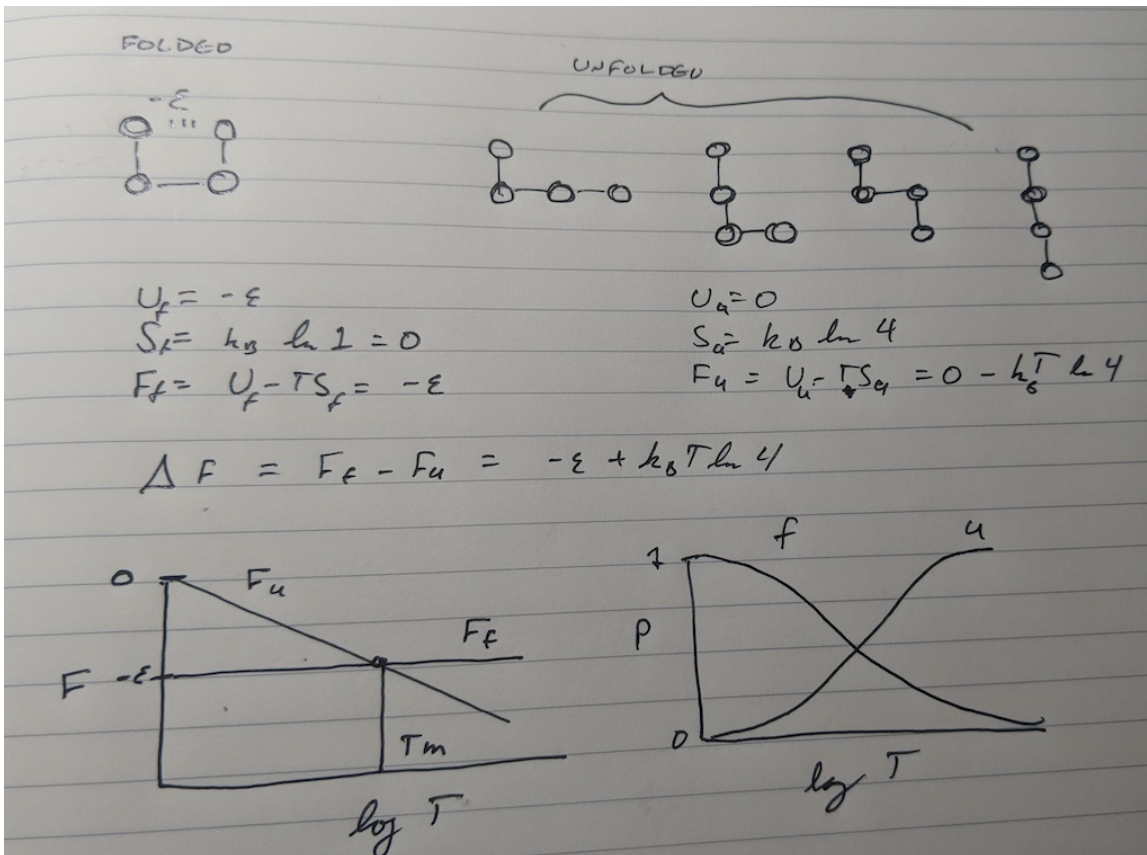 FOLDED
UNFOLDED
-ε
U_f = -ε
S_f = k_B ln 1 = 0
F_f = U_f - TS_f = -ε
U_u = 0
S_u = k_B ln 4
F_u = U_u - TS_u = 0 - k_B T ln 4
Δ F = F_f - F_u = -ε + k_B T ln 4
0
F_u
F_f
F
-ε
Tm
log T
1
f
u
P
0
log T